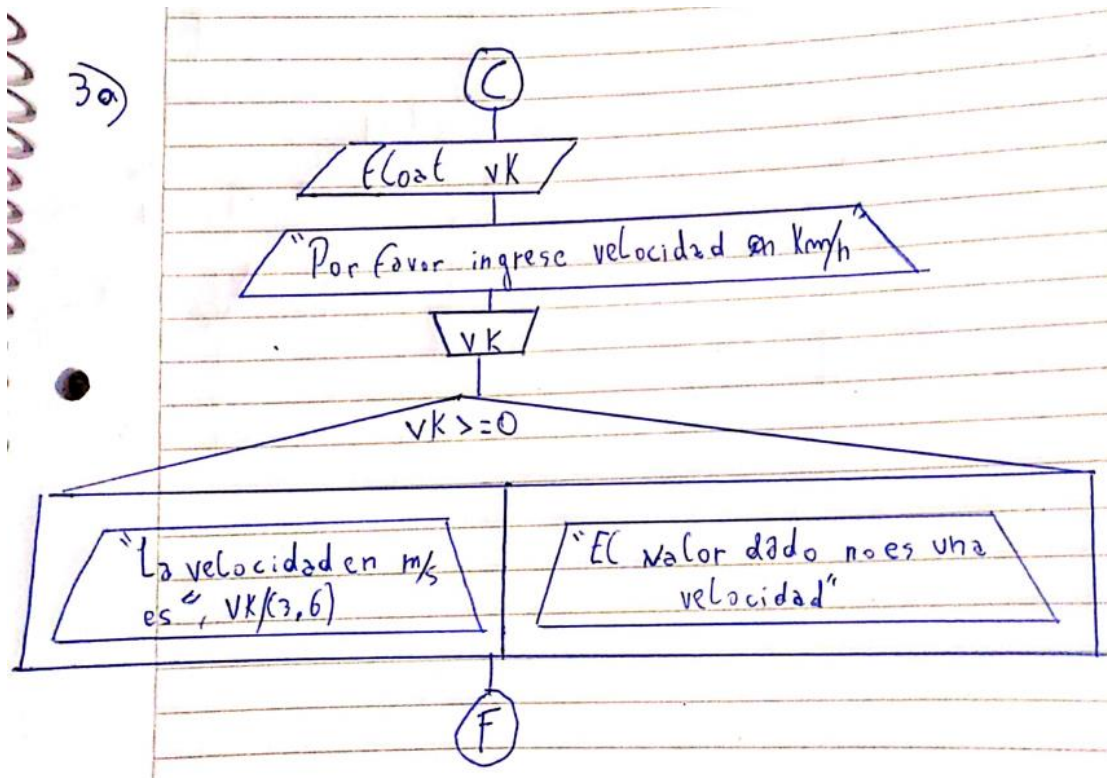 3a)
C
Float vK
"Por favor ingrese velocidad en Km/h"
vK
vK >= 0
"La velocidad en m/s
es", vK/(3,6)
"El valor dado no es una
velocidad"
F